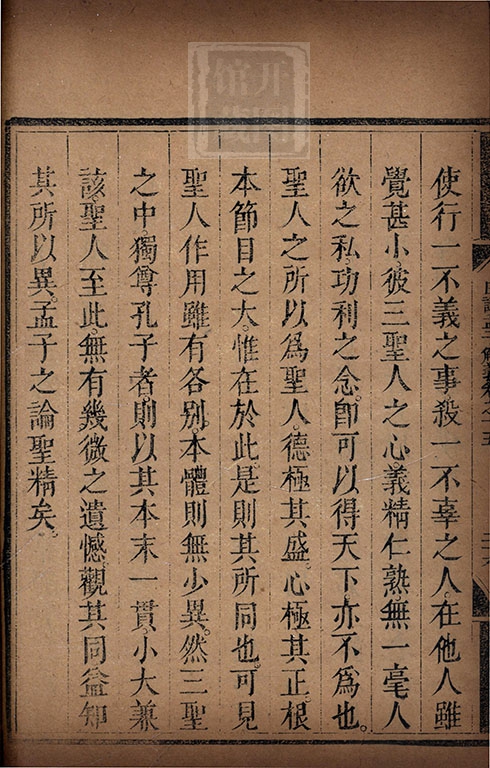 使行一不義之事殺一不辜之人在他人雖
覺甚小彼三聖人之心義精仁熟無一毫人
欲之私功利之念卽可以得天下亦不爲也。
聖人之所以爲聖人德極其盛心極其正根
本節目之大。惟在於此是則其所同也。可見
聖人作用雖有各別。本體則無少異。然三聖
之中。獨尊孔子者。則以其本末一貫。小大兼
該。聖人至此。無有幾微之遺憾。觀其同益知
其所以異。孟子之論聖精矣。